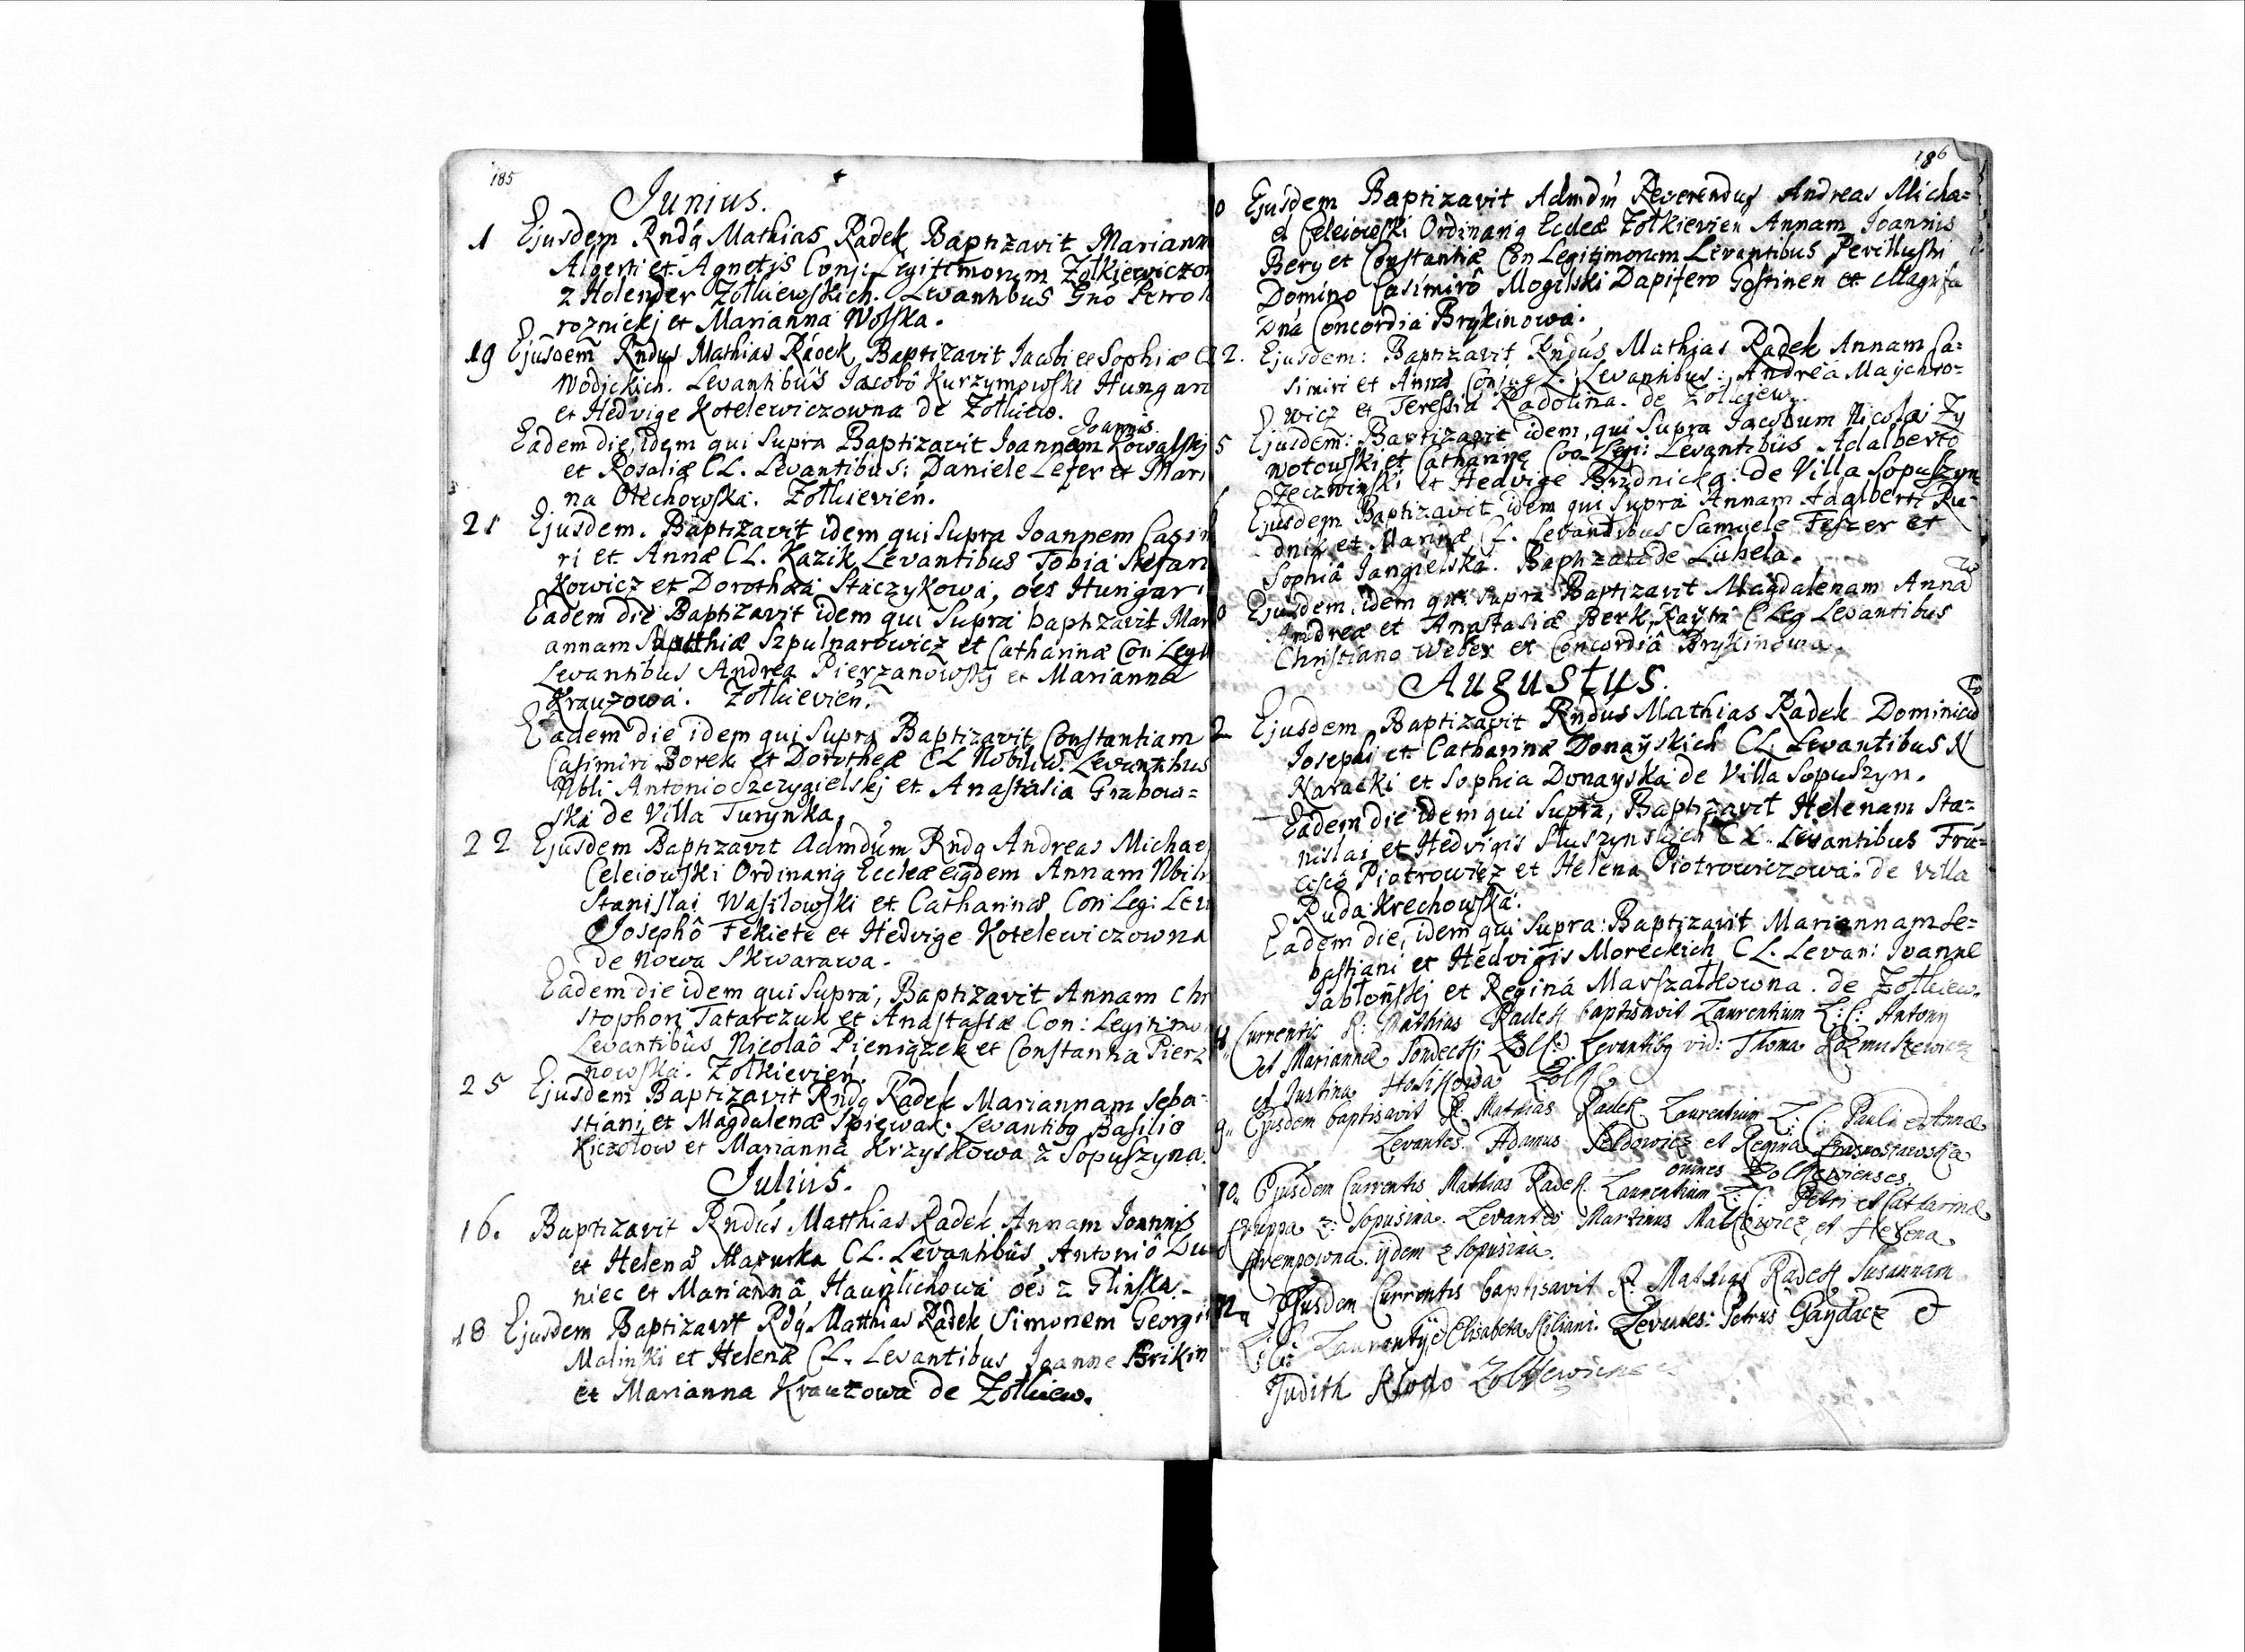 185
Junius.
1 Ejusdem Rndq Mathias Radek Baptizavit Mariann
Alberti et Agnetis Conj: Legittimorum Zolkiewiczow
z Holender Zołkiewskich. Levantibus Gnō Petro
roznickj et Marianna Wolska.
19 Ejusdem Rndus Mathias Radek Baptizavit Jacobi et Sophiæ C
Wodjckich. Levantibus Jacobô Kurzympwski Hungaro
et Hedvige Kotelewiczowna de Zołkiew.
Joannis.
Eadem die, idem qui Supra Baptizavit Joannem Kowalskj
et Rosaliæ CL. Levantibus: Daniele Lefer et Mari
na Olechowska. Zołkievień.
21 Ejusdem. Baptizavit idem qui Supra Joannem Casim
ri et Annæ CL. Kazik Levantibus Tobia Stefan
Kowicz et Dorothea Staczykowa, oēs Hungari
Eadem die Baptizavit idem qui Supra baptizavit Mar
annam Matthiæ Szpulnarowicz et Catharinæ Con Legit
Levantibus Andrea Pierzanowskj et Marianna
Krauzowa. Zołkievień.
Eadem die idem qui Supra Baptizavit Constantiam
Casimiri Borek et Dorotheæ CL Nobiliū. Levantibus
Nbli Antonio Szczygielskj et Anastasia Grabow=
ska de Villa Turynka.
22 Ejusdem Baptizavit Admdum Rndq Andreas Michae
Celeiowski Ordinariq Eccleæ eiqdem Annam Nbili
Stanislai Wasilowski et Catharinæ Con Leg: Lev
Josephô Fekiete et Hedvige Kotelewiczowna
de Nowa Skwarawa.
Eadem die idem qui Supra, Baptizavit Annam Chr
stophori Tatarczuk et Anastasiæ Con: Legitimo
Levantibus Nicolaô Pieniążek et Constantia Pierz
nowska. Zołkievień.
25 Ejusdem Baptizavit Rndq Radek Mariannam Seba-
stiani et Magdalenæ Spiewak. Levantibq Basilio
Kiczołow et Marianna Krzyskowa z Sopuszyna.
Julius.
16. Baptizavit Rndus Matthias Radek Annam Joannis
et Helenæ Mazurka CL. Levantibûs, Antoniô Du
niec et Mariannâ Hawrilichowa oēs z Glinska.
18 Ejusdem Baptizavit Rdq Matthias Radek Simonem Georgii
Malinski et Helenæ CL. Levantibus Joanne Brikin
et Marianna Krautowa de Zołkiew.
186
0 Ejusdem Baptizavit Admdm Reverendus Andreas Micha=
el Celeiowski Ordinariq Eccleæ Zołkievień Annam Joannis
Bery et Constantiæ Con Legitimorum Levantibus Perillustri
Domino Casimirô Mogilski Dapifero Gostinen et Magnifa
Dnâ Concordia Brykinowa.
2. Ejusdem: Baptizavit Rndus Mathias Radek Annam Ca=
simiri et Annæ Conjug L. Levantibus: Andrea Maychro=
wicz et Teressia Radolina. de Zołkjew.
5 Ejusdem: Baptizavit idem, qui Supra Jacobum Nicolai Zy
wotowski et Catharinę Con Legi: Levantibus Adalberto
Jeczwinski et Hedvige Brudnicka. de Villa Sopuszyn
Ejusdem Baptizavit idem qui Supra Annam Adalberti Ru-
dnik et Marinæ CL. Levantibus Samuele Feszer et
Sophiâ Jangielska. Baptzata de Lubela.
0 Ejusdem idem qui Supra Baptizavit Magdalenam Anna
Andreæ et Anastasiæ Berk, Raytri C Leg Levantibus
Christiano Weber et Concordiâ Brykinowa.
Augustus.
2 Ejusdem Baptizavit Rndus Mathias Radek Dominicū
Josephi et Catharinæ Donayskich CL. Levantibus N
Naracki et Sophia Donayska de Villa Sopuszyn.
Eadem die idem qui Supra, Baptizavit Helenam Sta=
nislai et Hedvigis Słuszynskich CL. Levantibus Frā=
ciscô Piotrowicz et Helena Piotrowiczowa. de Villa
Ruda Krechowska.
Eadem die, idem qui Supra: Baptizavit Mariannam Se=
bastiani et Hedvigis Moreckich CL. Levan: Joanne
Jabłońskj et Reginâ Marszałkowna. de Zołkiew.
Currentis R: Mathias Radek baptisavit Laurentium L: C: Antony
et Mariannæ Sondecski Zolk: Levantibq vid: Thoma Kozmuszewicz
et Justina Zolk
9.. Ejusdem baptisavit R: Mathias Radek Laurentium L: C: Pauli et Annæ
Levantes Adamus Seldowicz et Regina Krasnostawska
omnes Zolkewienses.
10.. Ejusdem Currentis Mathias Radek Laurentium L: C: Petri et Catharinæ
Kruppa z: Sopusina. Levantes Martinus Malkiewicz et Helena
Krempowna. ijdem z Sopusina.
12.. Ejusdem Currentis baptisavit R: Mathias Radek Susannam
L: C: Laurentij et Elisabeta Kiliani. Levantes: Petrus Gaydacz et
Judith Zolkiewiense